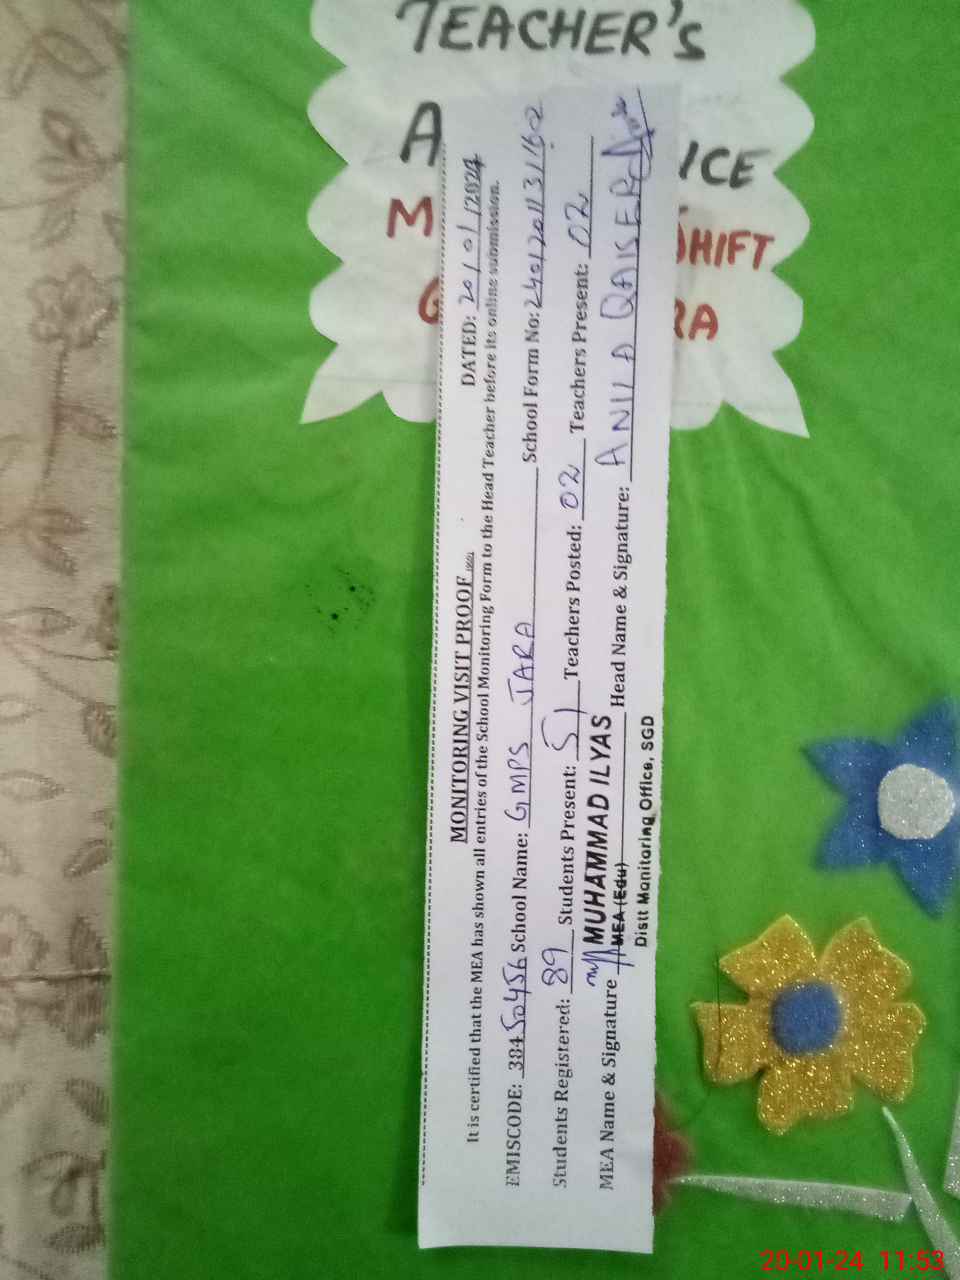 TEACHER's
A ICE
M SHIFT
G RA
MONITORING VISIT PROOF
DATED: 20/01/2024
It is certified that the MEA has shown all entries of the School Monitoring Form to the Head Teacher before its online submission.
EMISCODE: 38450456 School Name: GMPS JARA School Form No: 2401201131162
Students Registered: 89 Students Present: 51 Teachers Posted: 02 Teachers Present: 02
MEA Name & Signature MUHAMMAD ILYAS Head Name & Signature: ANILA QAISER
MEA (Edu)
Distt Monitoring Office, SGD
20-01-24 11:53